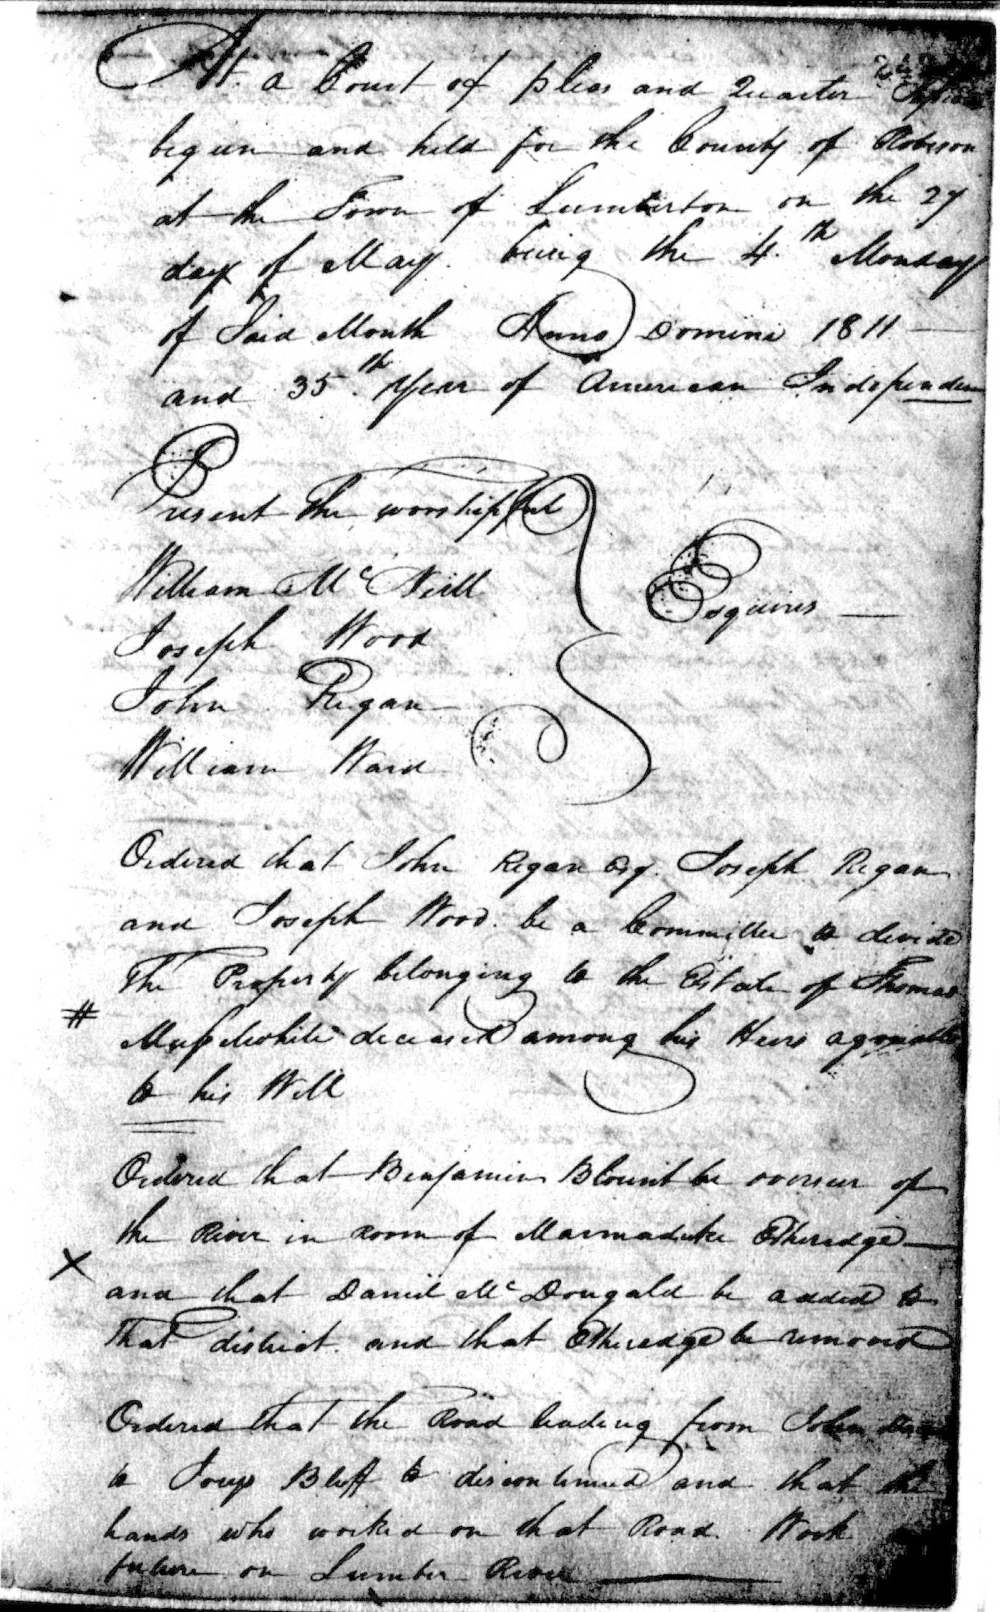 At a Court of pleas and Quarter Session
begun and held for the County of Robeson
at the Town of Lumberton on the 27
day of May being the 4th Monday
of Said Month Anno Domini 1811
and 35th Year of American Independen
Present The worshipful
William McNeill
Joseph Wood
John Regan
William Ward
Esquires
Ordered that John Regan Esq. Joseph Regan
and Joseph Wood be a Committee to devide
The Property belonging to the Estate of Thomas
# Musselwhite deceased among his Heirs agreeable
to his Will
Ordered that Benjamin Blount be overseer of
the River in room of Marmaduke Etheredge
X and that Daniel McDougald be added to
That district and that Etheredge be removed
Ordered that the Road leading from John
to Bluff to discontinued and that the
hands who worked on that Road Work
future on Lumber River